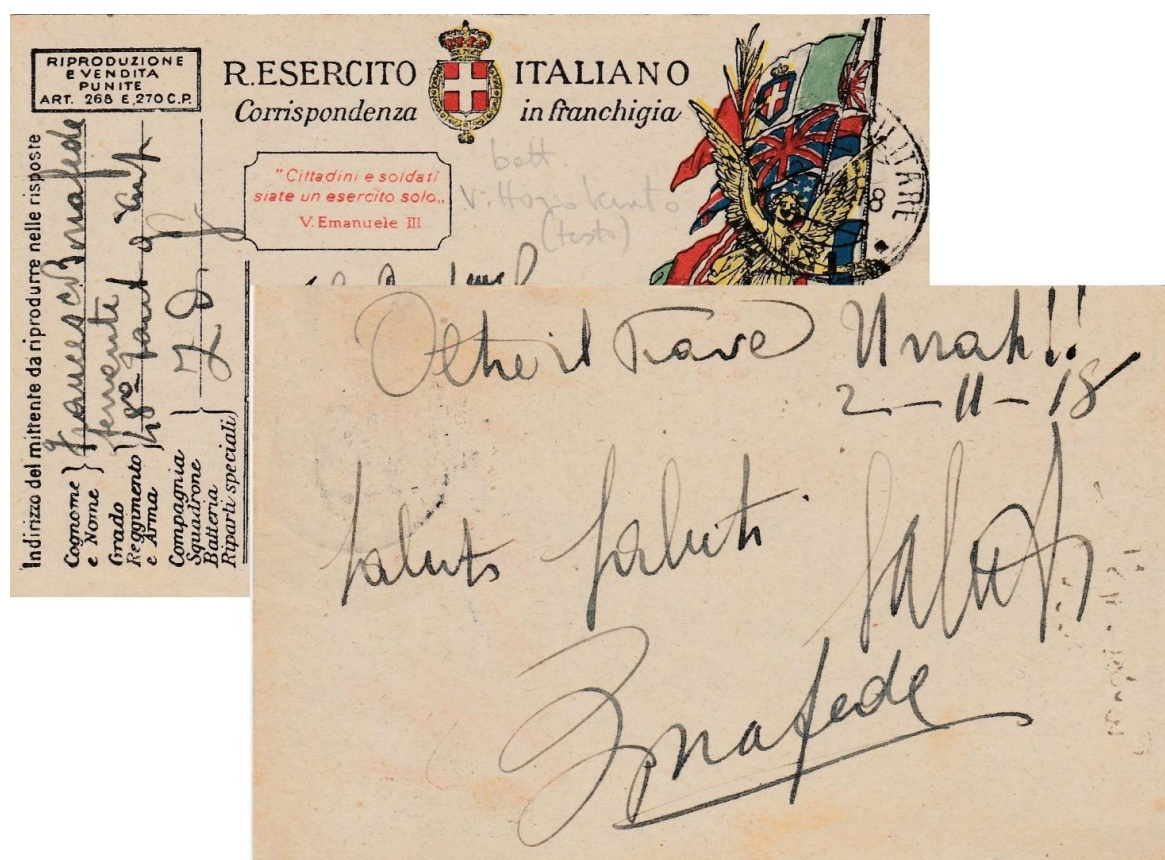 RIPRODUZIONE
E VENDITA
PUNITE
ART. 268 E 270 C.P.
R. ESERCITO ITALIANO
Corrispondenza in franchigia
"Cittadini e soldati
siate un esercito solo„
V. Emanuele III
batt.
Vittorio Veneto
(testo)
MILITARE
8
Indirizzo del mittente da riprodurre nelle risposte
Cognome
e Nome } Francesco Bonafede
Grado tenente
Reggimento
e Arma }
Compagnia
Squadrone
Batteria
Riparti speciali }
Oltre il Piave Urrah!!
2-11-18
Saluti Saluti Saluti
Bonafede